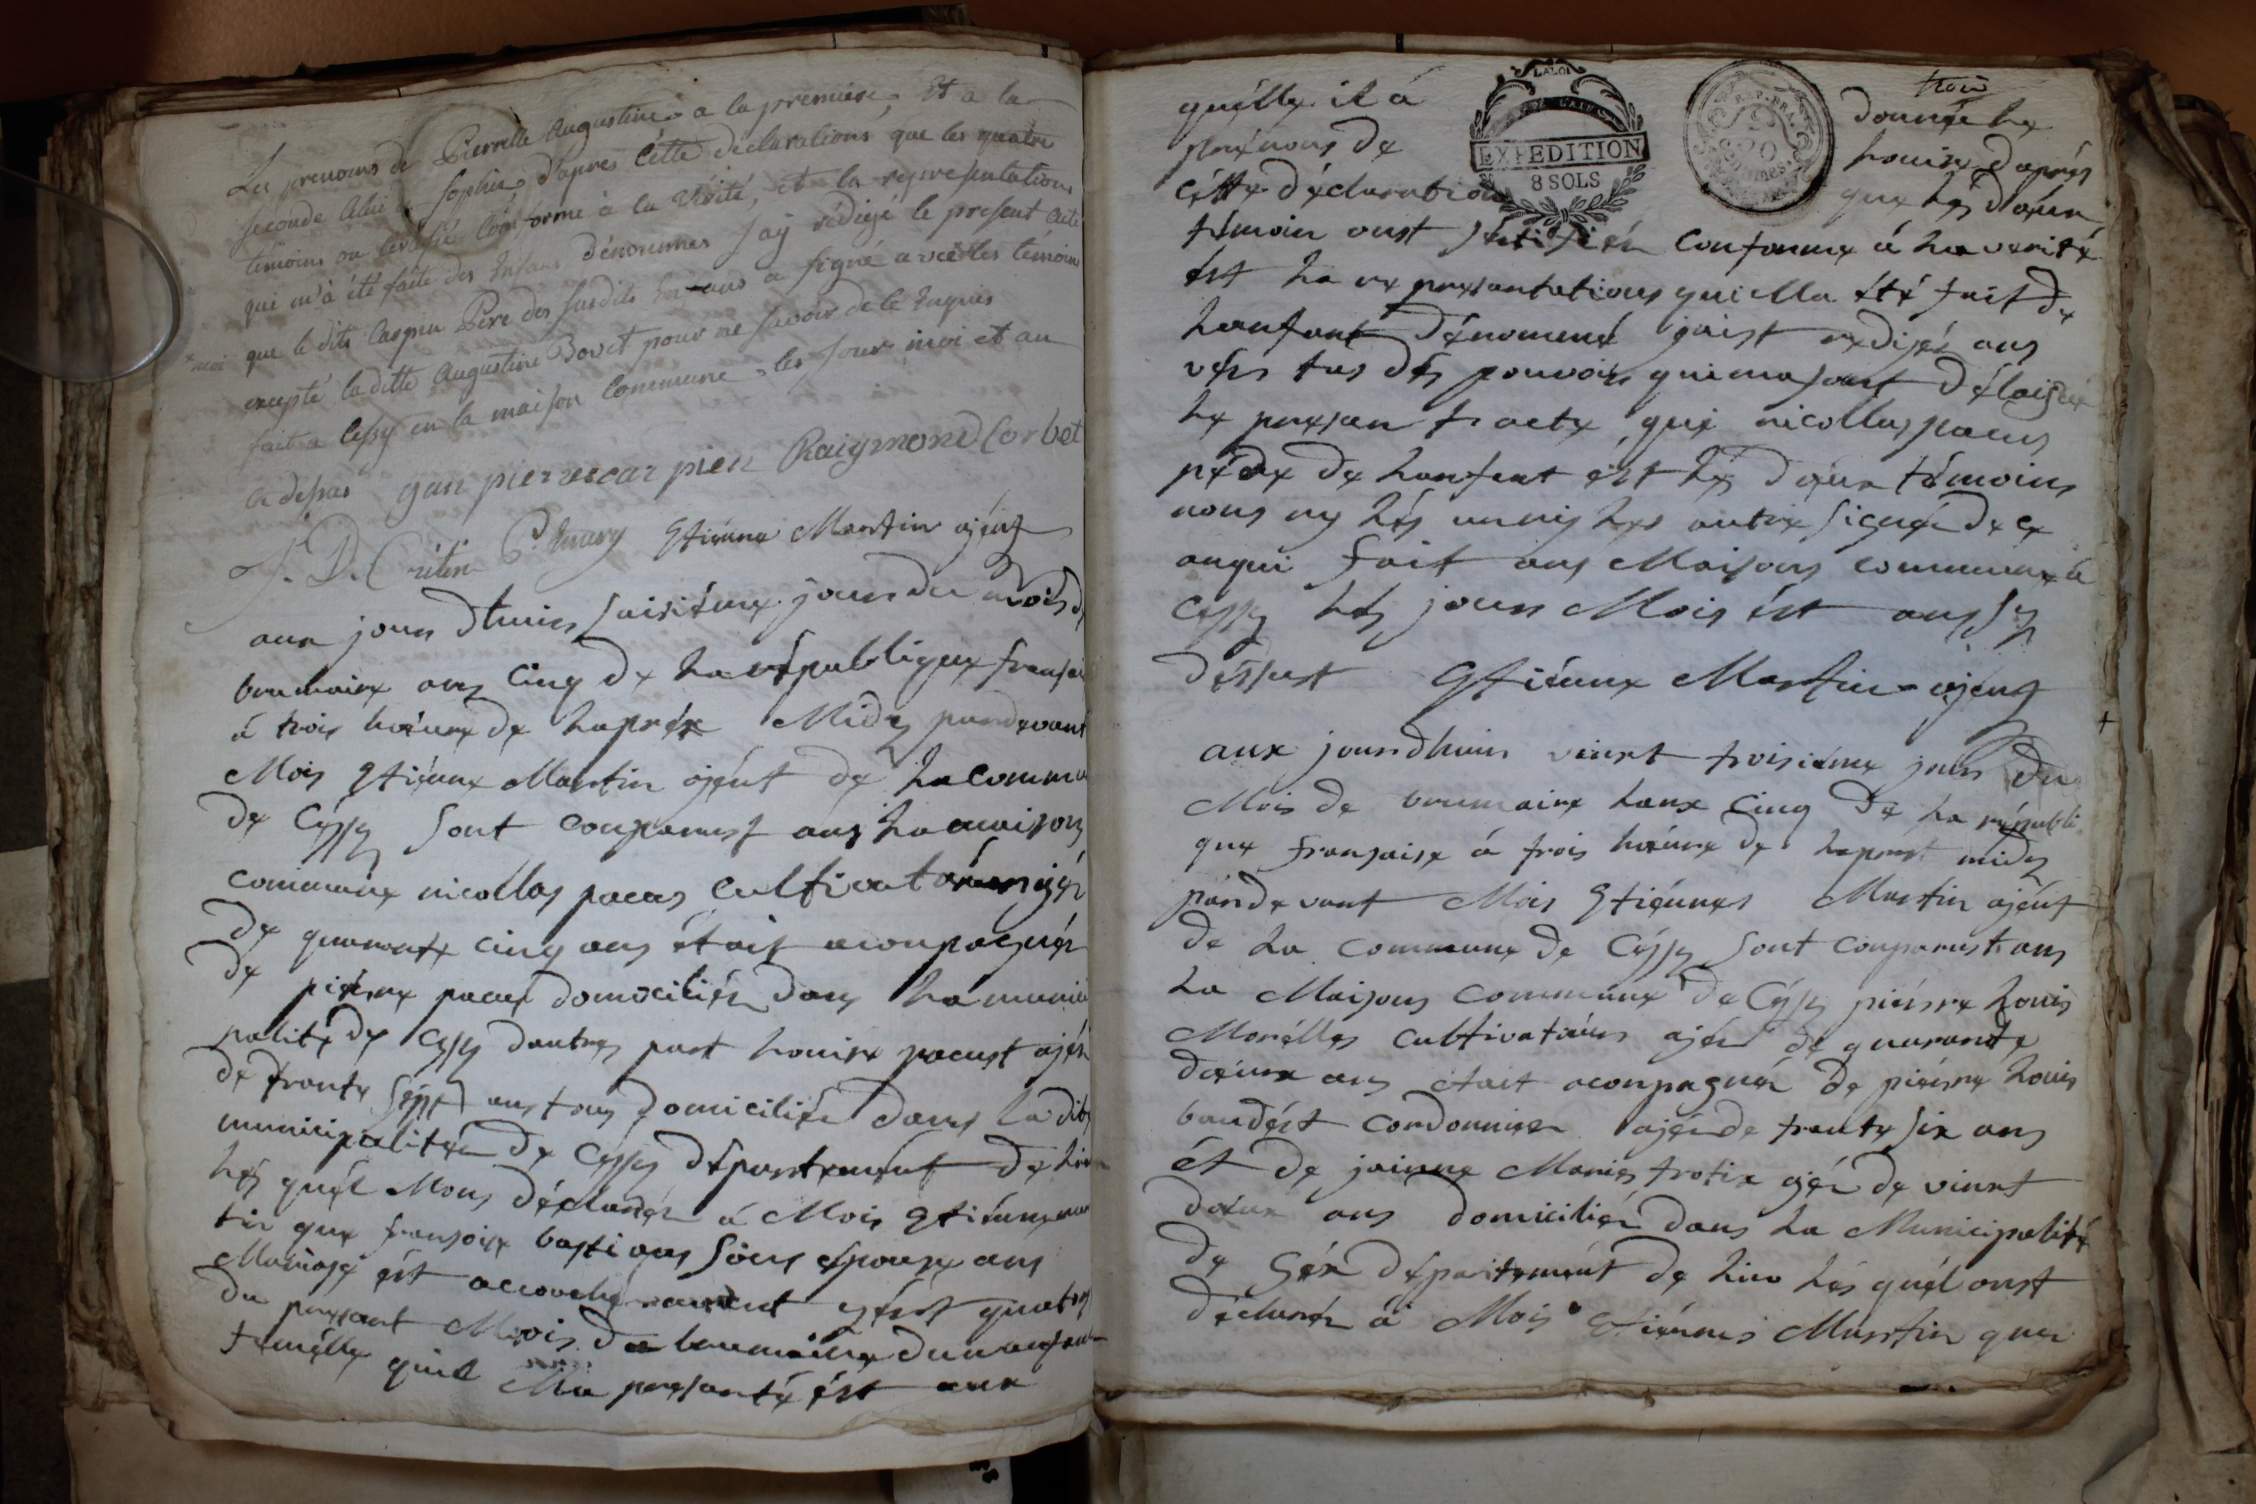 Les prenoms de Pierrette Augustine a la première, et a la
seconde Sophie, d'apres cette déclarations que les quatre
témoins on certifié Conforme à la vérité, et la representations
qui m'à été faite des Enfans dénommés Jay rédigé le présent acte
que le dits Carpin Père des susdits Enfans a signé avec les témoins
moi
excepté laditte Augustine Bovet pour ne savoir de le Enquis
fait a Cessy en la maison Commune les jour moi et an
ci dessus gan pierre carpien Raiymond Corbet
J. D. Critin P. Emary Etiénne Martin ajént
aux jour dhuis saisiéme jour du Mois de
brumaire ans cinq de la républiques fransai
á trois hœure de laprés Midy pardevant
Mois Etiénne Martin ajént de la commu
de Céssy sont comparust ans la maisons
commune nicollas pacus cultivateur ajér
de quarante cinq ans était acompagnér
de piérre pacus domicilier dans la munici
palité de Cessy dautres part louise pacust ajér
de trante sépt ans tous domiciliér dans la dite
municipalitér de Cessy département de lin
lés quél Mons déclarér á Mois Etiénne mar
tin que fransoise bastians sons épouse ans
Mariage ést accouché quator
du présant Mois de brumaire dun anfant
fumélle quil Ma présanté ést aux
quélle il á donné le
prénons de louise daprés
cétte déclaration que lés dœux
témoin onst sértifiér conforme á la verité
ést la représantations qui Ma été fait de
lanfant dénommé jaist redijér ans
vérs tus dés pouvoirs qui ma sont délaigué
le présan tracte que nicollas pacus
pére de lanfant ést lés dœux témoins
nons ny lés unnis les autre signér de ce
anqui fait ans Maisons commune á
Cessy lés jours Mois ést ans sy
déssust Etiénne Martin ajént
trois
aux jourdhuis vinst troisiéme jour du
Mois de brumaire lanx cinq de la républi
que fransaise á trois hœure de laprest midy
pardevant Mois Etiénnes Martin ajént
de la commune de Céssy sont comparust ans
la Maisons commune de Céssy piérre louis
Morélles cultivatéurs ajér de quarante
dœuxe ans était acompagnér de piérre louis
baudést cordonnier ajér de trante six ans
ét de jainne Maries trotix ajér de vinst
dœux ans domiciliér dans la Municipalité
de Géx département de lin lés quél onst
déclarér á Mois Etiénnes Martin que
LA LOI
EXPEDITION
8 SOLS
REP. FRA.
20